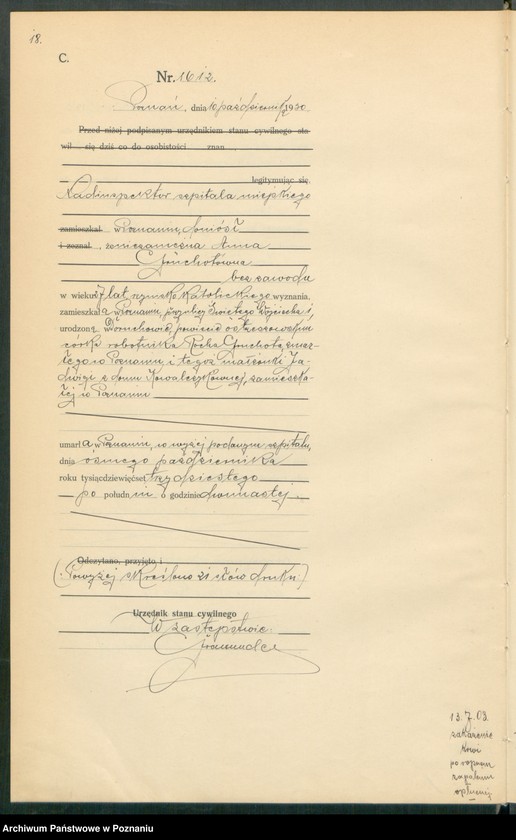 18.
C.
Nr. 1612.
Poznań, dnia 10 października 1930.
Przed niżej podpisanym urzędnikiem stanu cywilnego sta-
wił się dziś co do osobistości znan
legitymując się
Nadinspektor szpitala miejskiego
zamieszkał w Poznaniu, doniósł
i zeznał, że niezamężna Anna
Głuchotówna
bez zawodu
w wieku 7 lat, rzymsko katolickiego wyznania,
zamieszkała w Poznaniu, przy ulicy Świętego Wojciecha 1,
urodzona w powiecie ostrzeszowskim
córka robotnika Rocha Głuchota, zmar-
łego w Poznaniu, i tegoż małżonki Ja-
dwigi z domu Kowalczykównej, zamieszka-
łej w Poznaniu
umarła w Poznaniu, w wyżej podanym szpitalu,
dnia ósmego października
roku tysiącdziewięćset trzydziestego
po południu o godzinie dwunastej.
Odczytano, przyjęto i
(Powyżej skreślono 21 słów druku)
Urzędnik stanu cywilnego
W zastępstwie:
13.7.08
zakażenie
krwi
po ropnem
zapaleniu
opłucnej
Archiwum Państwowe w Poznaniu